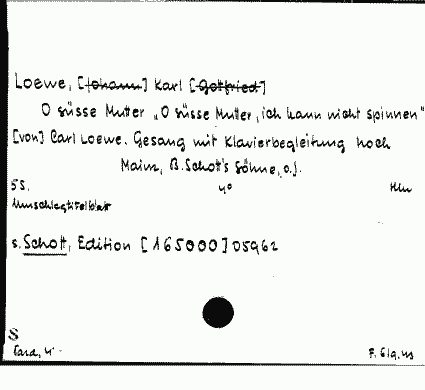 Loewe, [Johann] Karl [Gotfried]
O süsse Mutter „O süsse Mutter, ich kann nicht spinnen"
[von] Carl Loewe. Gesang mit Klavierbegleitung hoch
Mainz, B. Schott's Söhne, o.J.
5 S. 4°
Umschlagtitelblatt
s. Schott, Edition [165000] 05962
S